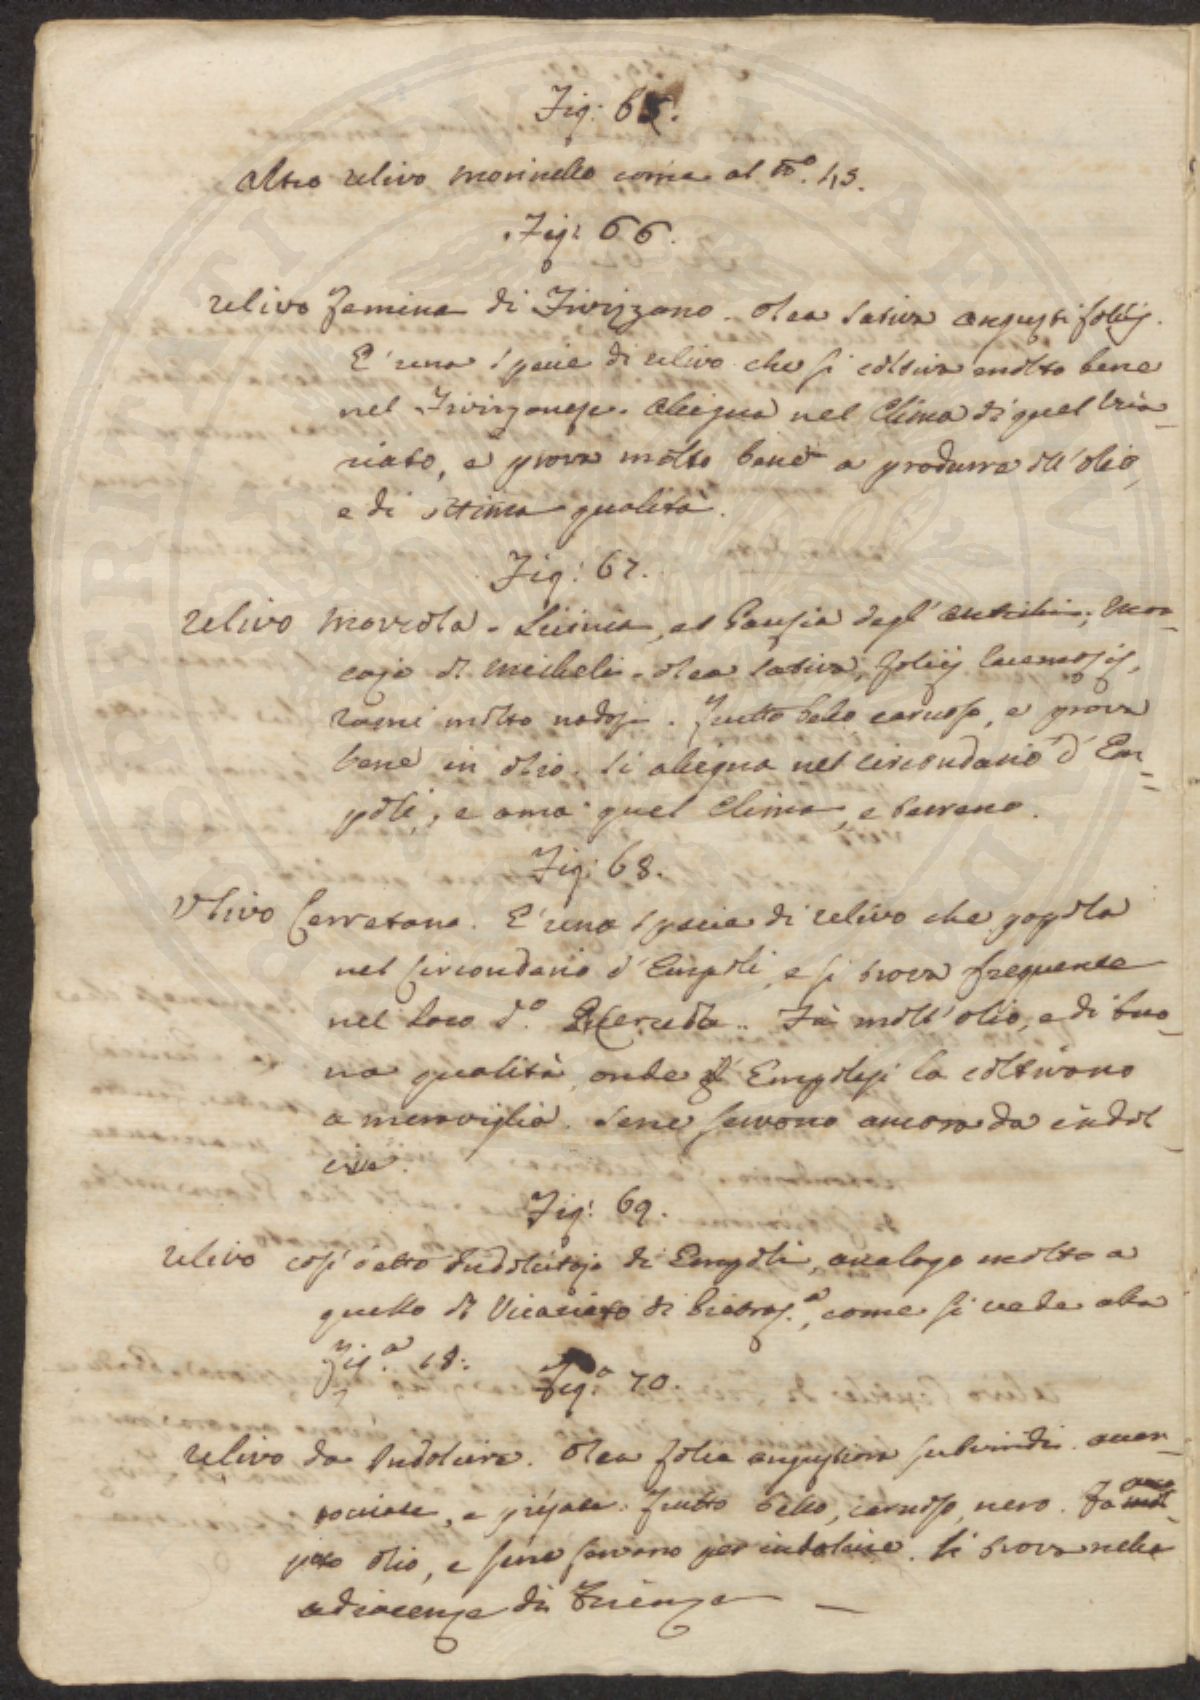 Fig: 65.
Altro ulivo morinello come al N.º 43.
Fig: 66.
ulivo femina di Fivizzano. Olea sativa angusti folijs.
E' una specie di ulivo che si coltiva molto bene
nel Fivizzanese. Alligna nel Clima di quel Vica-
riato, e prova molto bene a produrre dell'olio,
e di ottima qualità.
Fig: 67.
ulivo Morcola. Licinia, et Pausia degl'Antichi; Mor-
caja di Micheli. Olea sativa, folijs
rami molto nodosi. frutto bello carnoso, e prova
bene in olio. Si aligna nel circondario d'Em-
poli, e ama quel Clima, e terreno.
Fig: 68.
Vlivo Cerretana. E' una specie di ulivo che popola
nel Circondario d'Empoli, e si trova frequente
nel loco d.º Fà molt'olio, e di buo-
na qualità, onde gl'Empolesi la coltivano
a meraviglia. Sene servono ancora da indol
cire.
Fig: 69.
ulivo così detto Indolcitojo di Empoli, analogo molto a
quello di Vicariato di Pietras.ª, come si vede alla
Fig.ª 18:
Fig.ª 70.
ulivo da Indolcire. Olea folia angustiora subviridi accar-
tociate, e piegate. frutto bello, carnoso, nero. Fà anco
poco olio, e sene servono per indolcire. Si trova nelle
adiacenze di Firenze —